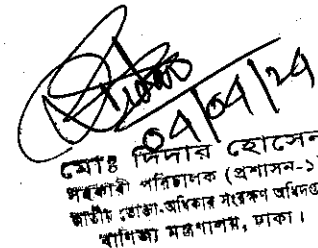 04/04/24
মোঃ দিদার হোসেন
সহকারী পরিচালক (প্রশাসন-১)
জাতীয় ভোক্তা-অধিকার সংরক্ষণ অধিদপ্ত
বাণিজ্য মন্ত্রণালয়, ঢাকা।